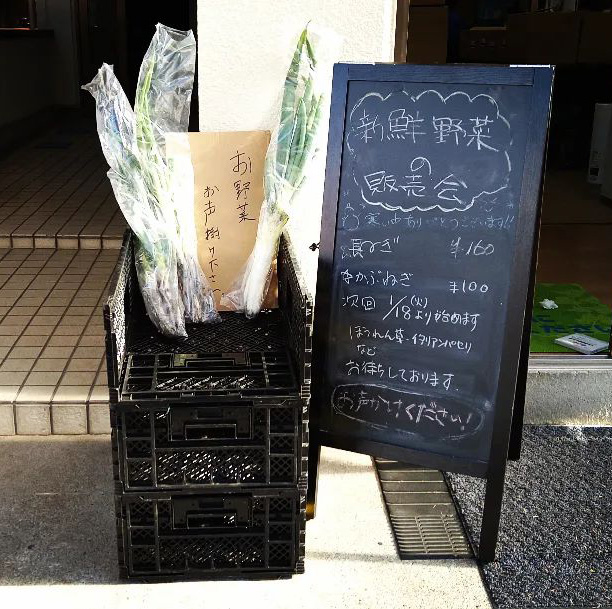 お野菜
お声掛け下さい
新鮮野菜
の
販売会
寒い中ありがとうございます!!
長ねぎ ¥160
なかぶねぎ ¥100
次回 1/18(火)より始めます
ほうれん草・イタリアンパセリ
など
お待ちしております。
お声かけください!